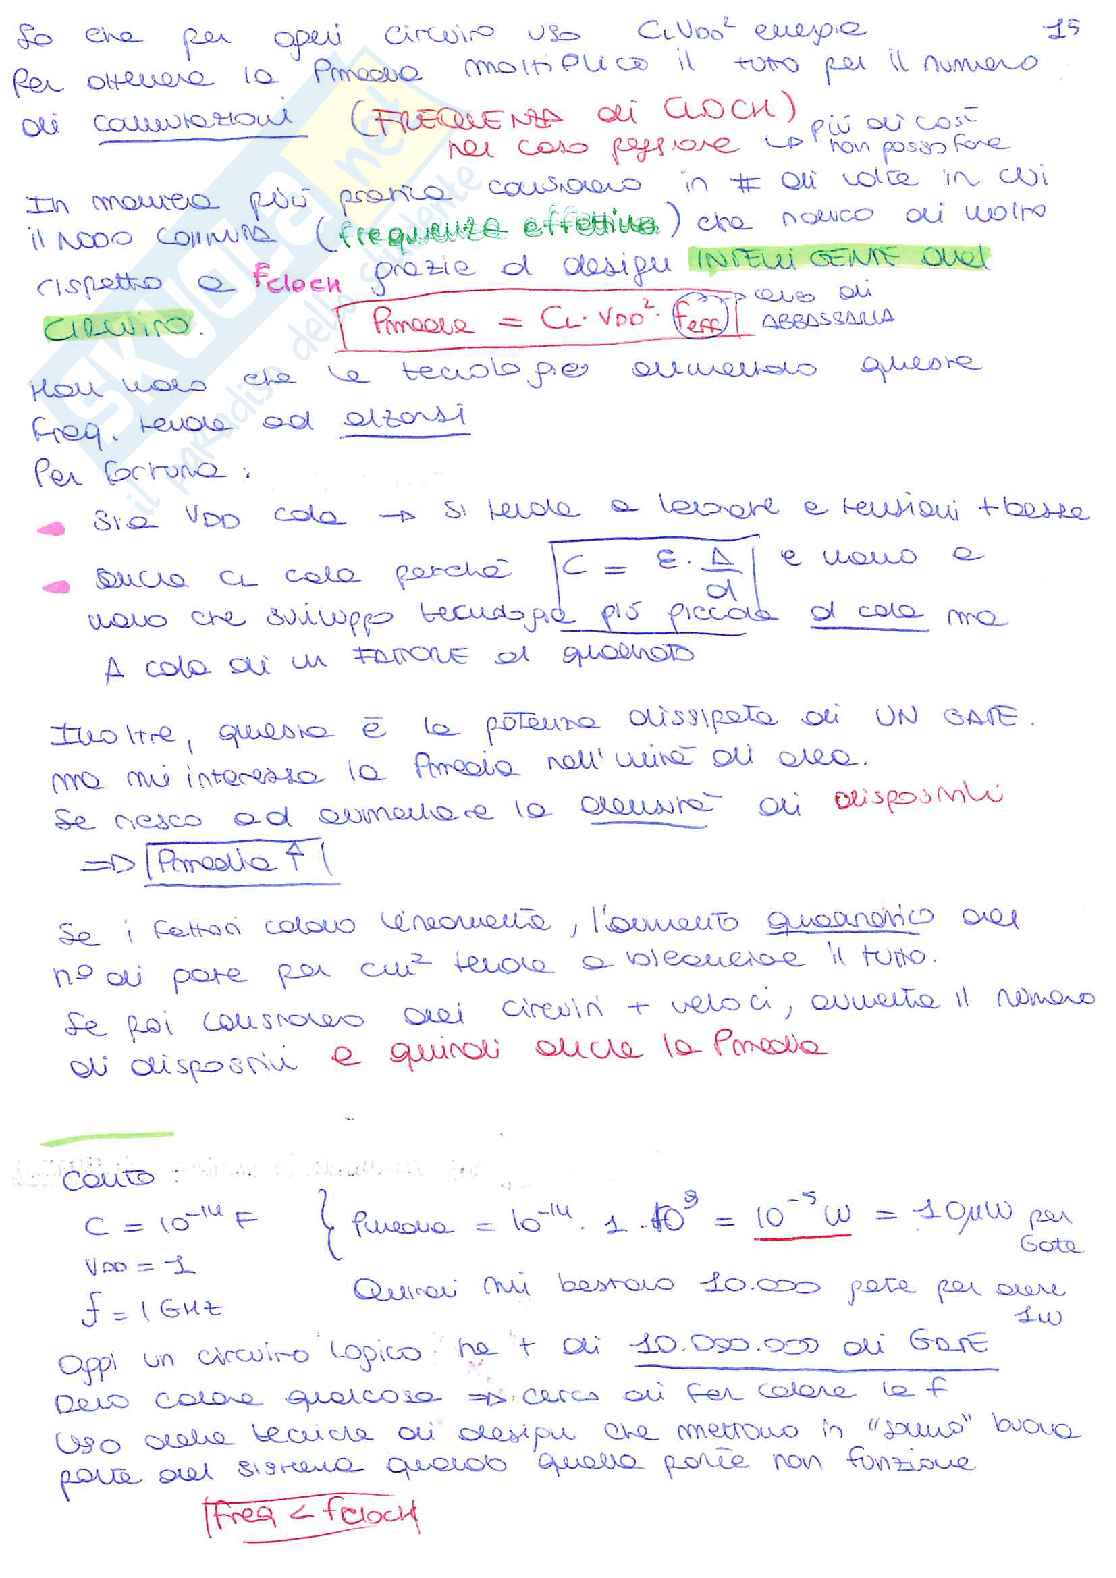 So che per ogni circuito uso CLVDD² energia 15
Per ottenere la Pmedia moltiplico il tutto per il numero
di commutazioni (FREQUENZA di CLOCK) più di così
nel caso peggiore ↳ non posso fare
In maniera più pratica considero in # di volte in cui
il nodo commuta (frequenza effettiva) che riduco di molto
rispetto a fclock grazie al design INTELLIGENTE del
CIRCUITO. Pmedia = CL · VDD² · feff → cerco di
ABBASSARLA
Man mano che le tecnologie aumentano queste
freq. tende ad alzarsi
Per fortuna :
- sia VDD cala → si tende a lavorare a tensioni + basse
- anche CL cala perché C = ε · A/d e mano a
mano che sviluppo tecnologia più piccola d cala ma
A cala di un FATTORE al quadrato
Inoltre, questa è la potenza dissipata di UN GATE.
ma mi interessa la Pmedia nell'unità di area.
Se riesco ad aumentare la densità di dispositivi
⇒ Pmedia ↑
Se i fattori calano linearmente, l'aumento quadratico del
n° di porte per cm² tende a bilanciare il tutto.
Se poi considero dei circuiti + veloci, aumenta il numero
di dispositivi e quindi anche la Pmedia
Conto :
C = 10⁻¹⁴ F { Pmedia = 10⁻¹⁴ · 1 · 10⁹ = 10⁻⁵ W = 10μW per
Gate
VDD = 1
Quindi mi bastano 10.000 porte per avere
1W
f = 1 GHz
Oggi un circuito logico ha + di 10.000.000 di GATE
Devo calare qualcosa ⇒ cerco di far calare la f
Uso delle tecniche di design che mettano in "sonno" buona
parte del sistema quando quella parte non funziona
freq < fclock
skuola.net
il paradiso dello studente